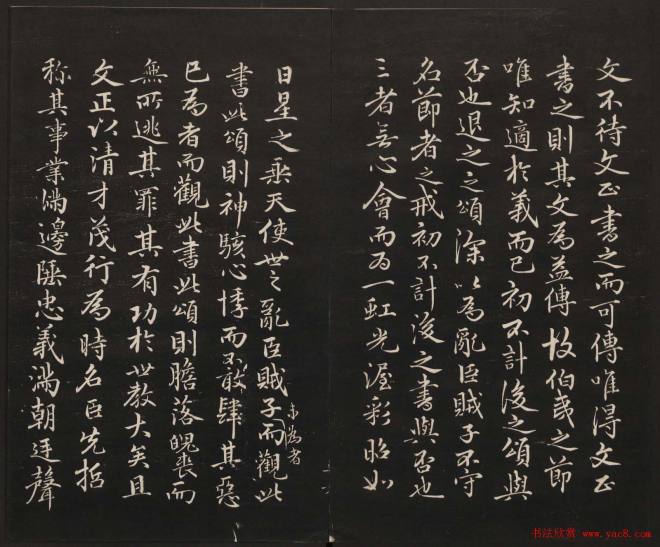 文不待文正書之而可傳唯得文正
書之則其文為益傳故伯夷之節
唯知適於義而已初不計後之頌與
否也退之之頌深以為亂臣賊子不守
名節者之戒初不計後之書與否也
三者無心會而為一虹光渥彩昭如
日星之垂天使世之亂臣賊子而觀此
書此頌則神駭心悸而不敢肆其惡
未為者
已為者而觀此書此頌則膽落魄喪而
無所逃其罪其有功於世教大矣且
文正以清才茂行為時名臣先哲
称其事業滿邊陲忠義滿朝廷聲
书法欣赏 www.yac8.com